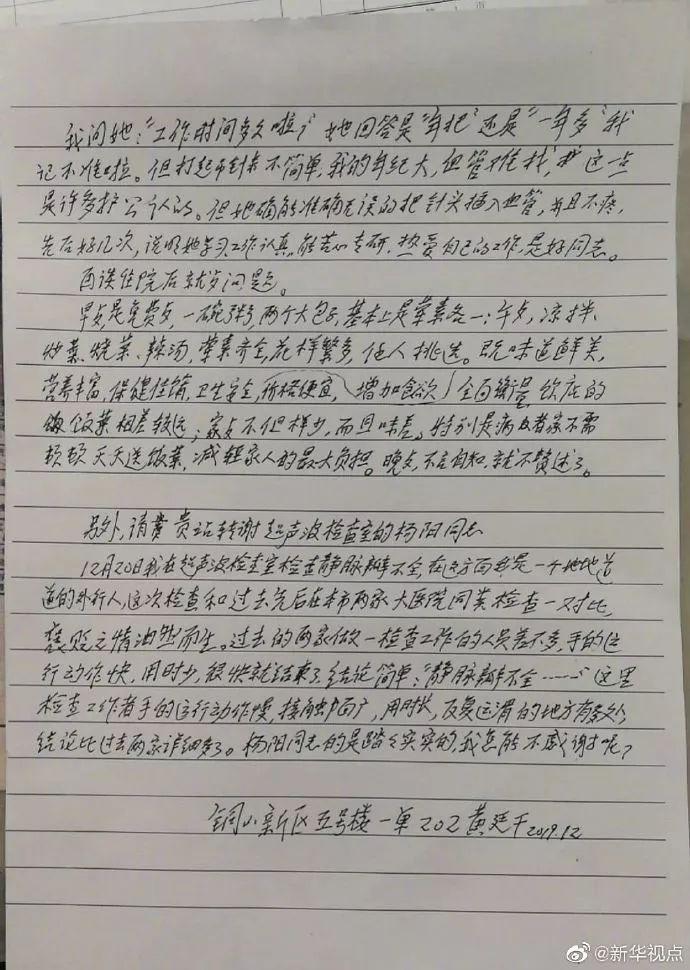 我问她："工作时间多久啦？"她回答是"年把"还是"一年多"我
记不准啦。但打起针来不简单，我的年纪大，血管难找，这一点
是许多护公认的。但她确能准确无误的把针头插入血管，并且不疼，
先后好几次，说明她学习工作认真，能苦心专研，热爱自己的工作，是好同志。
再谈住院后就歺问题。
早歺是免费歺，一碗粥，两个大包子，基本上是荤素各一；午歺，凉拌、
炒菜、烧菜、辣汤，荤素齐全，花样繁多，任人挑选。既味道鲜美，
营养丰富，保健佳销，卫生安全，价格便宜，增加食欲，全面衡量，饮店的
饭菜相差较远；家歺不但样少，而且味差。特别是病者家不需
顿顿天天送饭菜，减轻家人的最大负担。晚歺，不言自知，就不赘述了。
另外，请贵站转谢超声波检查室的杨阳同志
12月20日我在超声波检查室检查静脉瓣不全，在这方面我是一个地地道
道的外行人，这次检查和过去先后在本市两家大医院同类检查一对比，
褒贬之情油然而生。过去的两家做一检查工作的人员差不多，手的运
行动作快，用时少，很快就结束了，结论简单："静脉瓣不全……"这里
检查工作者手的运行动作慢，接触面广，用时长，反复运滑的地方有多处，
结论比过去两家详细多了。杨阳同志的是踏踏实实的，我怎能不感谢呢？
铜山新区五号楼一单202 黄廷干 2019.12
@新华视点